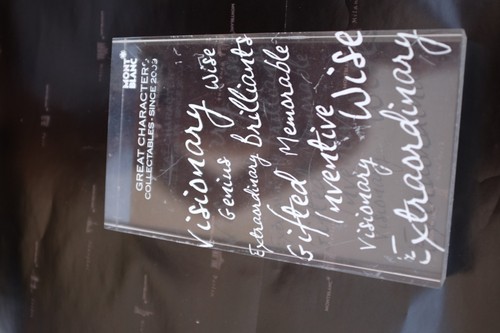 MONT
BLANC
GREAT CHARACTERS
COLLECTABLES · SINCE 2009
Visionary Wise
Genius
Extraordinary Brilliants
Gifted Memorable
Inventive
Visionary Wise
Extraordinary